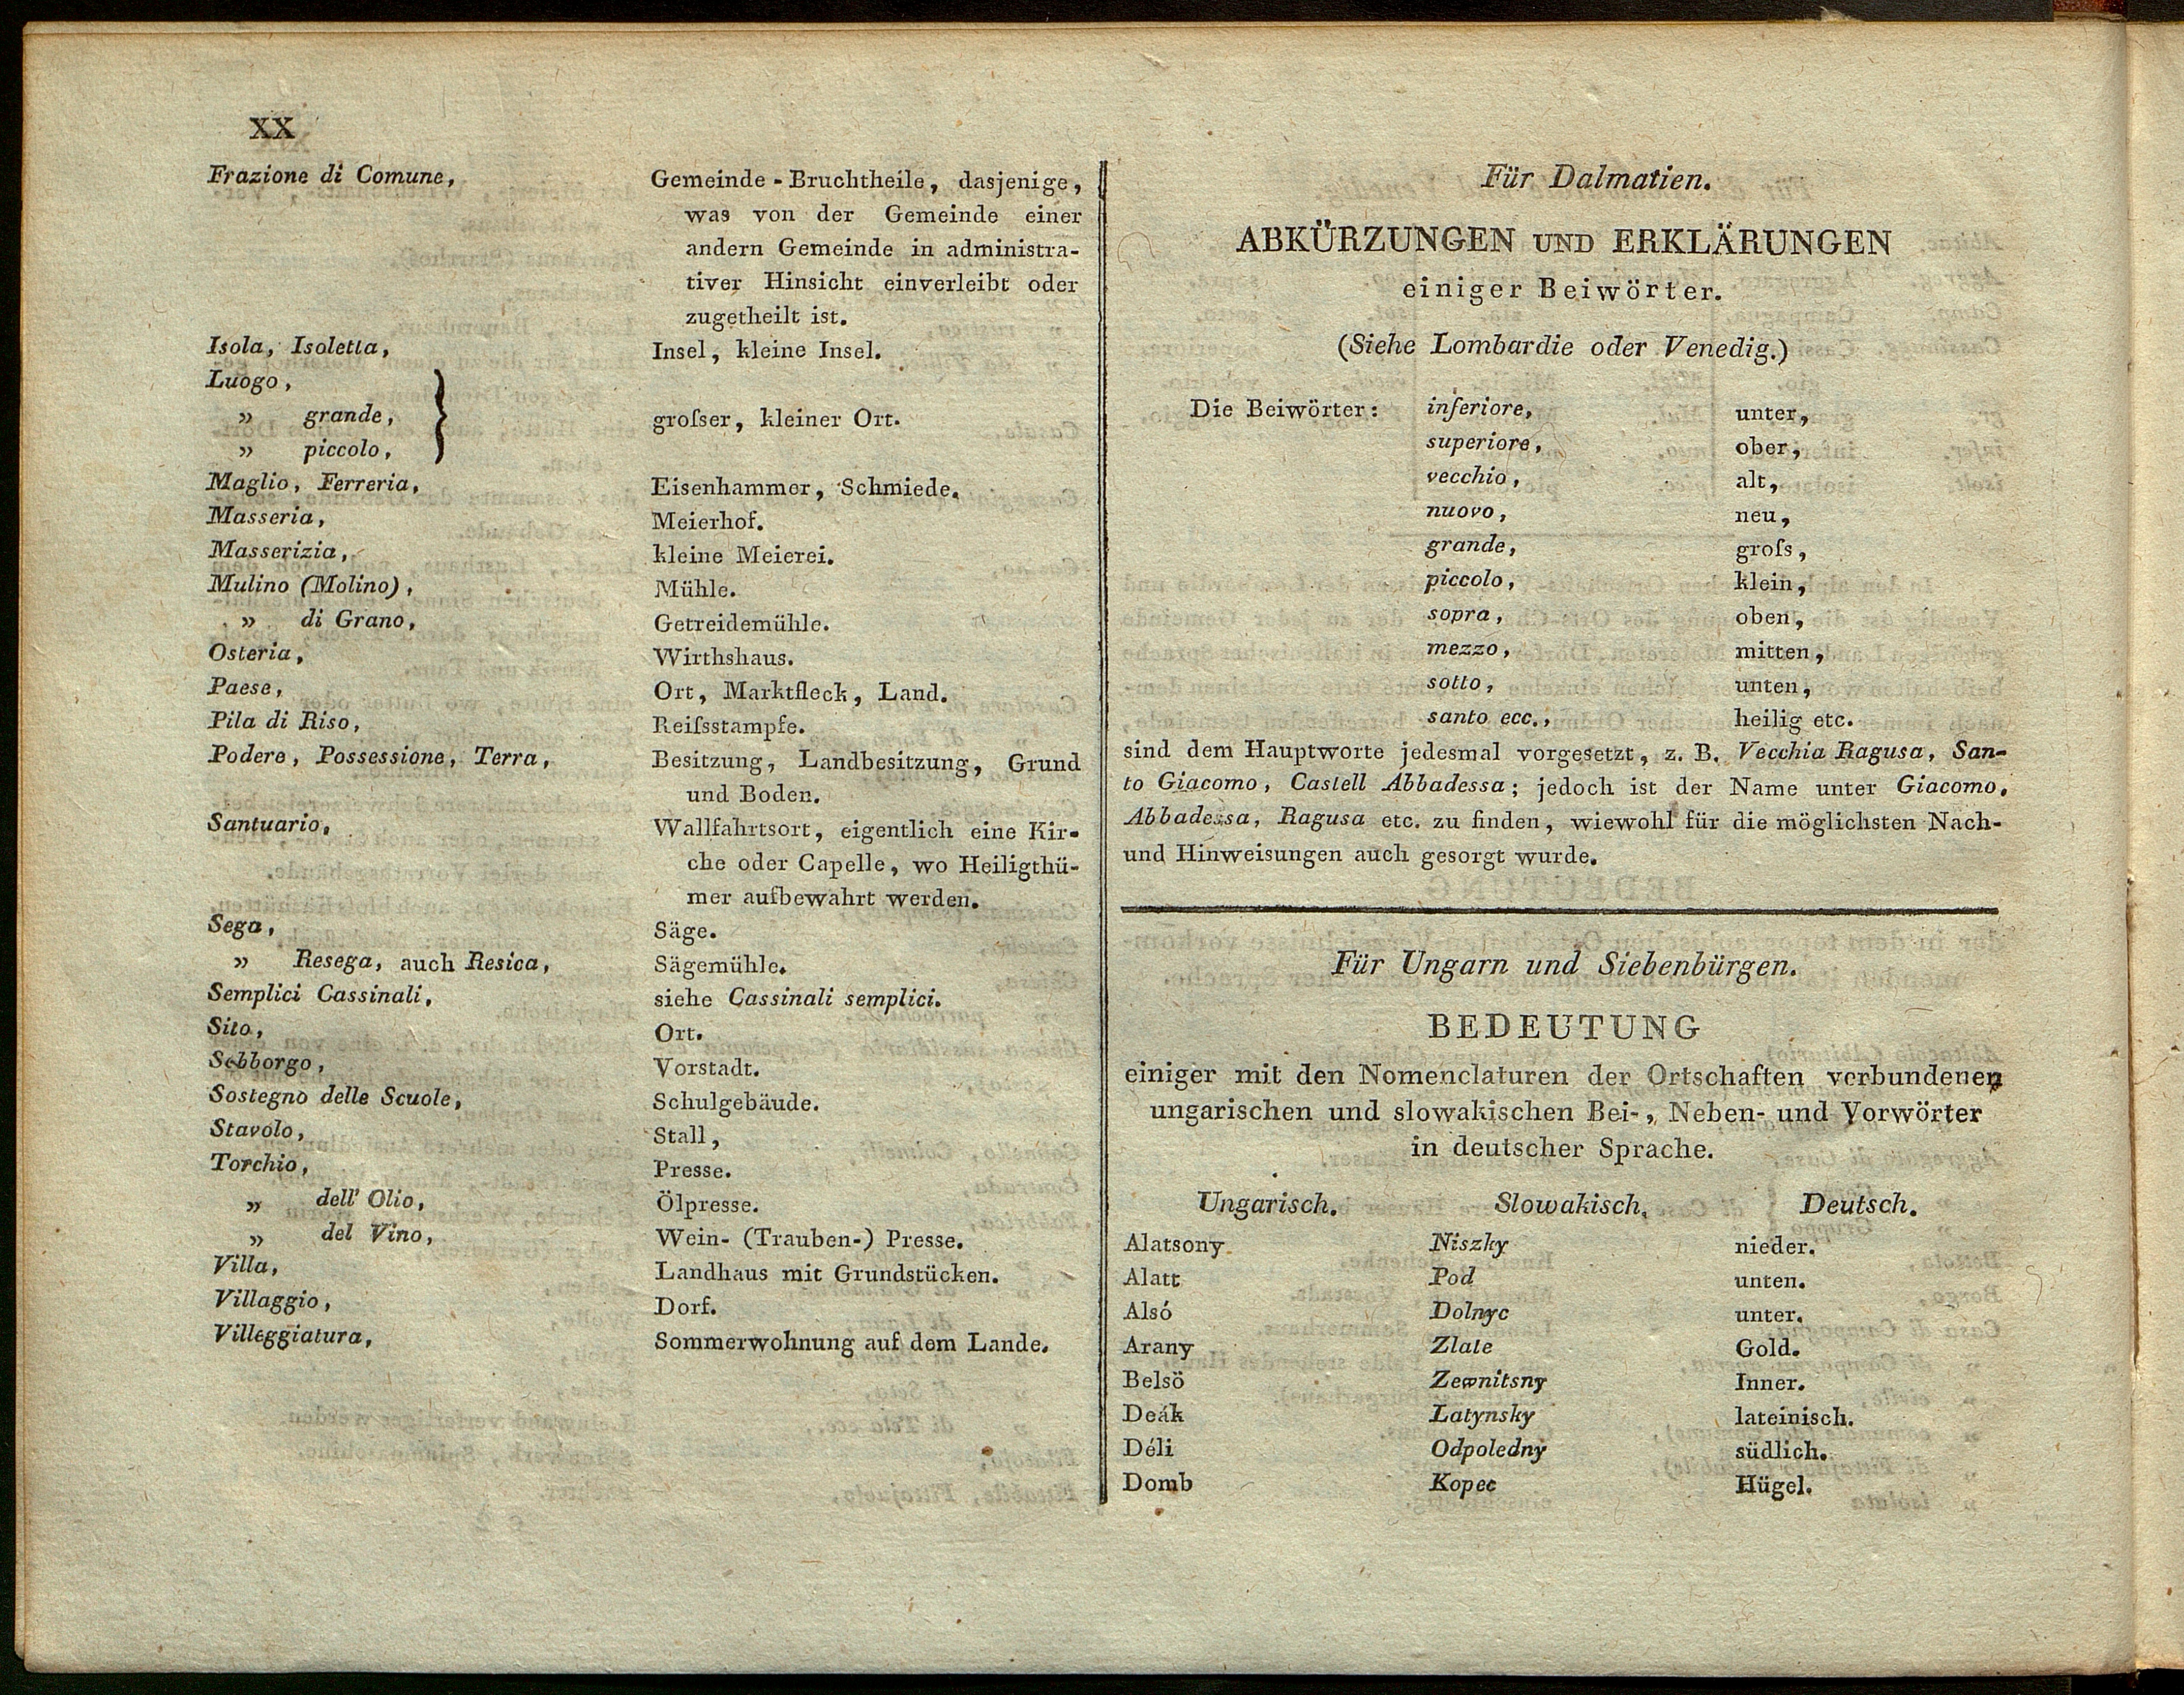 XX
Frazione di Comune, Gemeinde-Bruchtheile, dasjenige,
was von der Gemeinde einer
andern Gemeinde in administra-
tiver Hinsicht einverleibt oder
zugetheilt ist.
Isola, Isoletta, Insel, kleine Insel.
Luogo,
„ grande, groſser, kleiner Ort.
„ piccolo,
Maglio, Ferreria, Eisenhammer, Schmiede.
Masseria, Meierhof.
Masserizia, kleine Meierei.
Mulino (Molino), Mühle.
„ di Grano, Getreidemühle.
Osteria, Wirthshaus.
Paese, Ort, Marktfleck, Land.
Pila di Riso, Reiſsstampfe.
Podere, Possessione, Terra, Besitzung, Landbesitzung, Grund
und Boden.
Santuario, Wallfahrtsort, eigentlich eine Kir-
che oder Capelle, wo Heiligthü-
mer aufbewahrt werden.
Sega, Säge.
„ Resega, auch Resica, Sägemühle.
Semplici Cassinali, siehe Cassinali semplici.
Sito, Ort.
Sobborgo, Vorstadt.
Sostegno delle Scuole, Schulgebäude.
Stavolo, Stall,
Torchio, Presse.
„ dell' Olio, Ölpresse.
„ del Vino, Wein- (Trauben-) Presse.
Villa, Landhaus mit Grundstücken.
Villaggio, Dorf.
Villeggiatura, Sommerwohnung auf dem Lande.
Für Dalmatien.
ABKÜRZUNGEN UND ERKLÄRUNGEN
einiger Beiwörter.
(Siehe Lombardie oder Venedig.)
Die Beiwörter: inferiore, unter,
superiore, ober,
vecchio, alt,
nuovo, neu,
grande, groſs,
piccolo, klein,
sopra, oben,
mezzo, mitten,
sotto, unten,
santo ecc., heilig etc.
sind dem Hauptworte jedesmal vorgesetzt, z. B. Vecchia Ragusa, San-
to Giacomo, Castell Abbadessa; jedoch ist der Name unter Giacomo,
Abbadessa, Ragusa etc. zu finden, wiewohl für die möglichsten Nach-
und Hinweisungen auch gesorgt wurde.
Für Ungarn und Siebenbürgen.
BEDEUTUNG
einiger mit den Nomenclaturen der Ortschaften verbundenen
ungarischen und slowakischen Bei-, Neben- und Vorwörter
in deutscher Sprache.
Ungarisch. Slowakisch. Deutsch.
Alatsony Niszky nieder.
Alatt Pod unten.
Alsó Dolnyc unter.
Arany Zlate Gold.
Belsö Zewnitsny Inner.
Deák Latynsky lateinisch.
Déli Odpoledny südlich.
Domb Kopec Hügel.